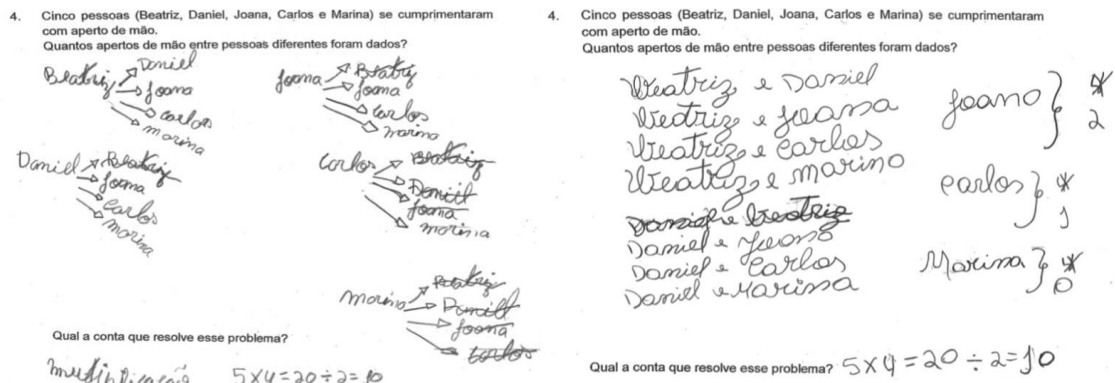 4. Cinco pessoas (Beatriz, Daniel, Joana, Carlos e Marina) se cumprimentaram
com aperto de mão.
Quantos apertos de mão entre pessoas diferentes foram dados?
Beatriz → Daniel
→ Joana
→ Carlos
→ Marina
Joana → Beatriz
→ Joana
→ Carlos
→ Marina
Daniel → Beatriz
→ Joana
→ Carlos
→ Marina
Carlos → Beatriz
→ Daniel
→ Joana
→ Marina
Marina → Beatriz
→ Daniel
→ Joana
→ Carlos
Qual a conta que resolve esse problema?
multiplicação 5x4=20÷2=10
4. Cinco pessoas (Beatriz, Daniel, Joana, Carlos e Marina) se cumprimentaram
com aperto de mão.
Quantos apertos de mão entre pessoas diferentes foram dados?
Beatriz e Daniel
Beatriz e Joana
Beatriz e Carlos
Beatriz e Marino
Daniel e Beatriz
Daniel e Joana
Daniel e Carlos
Daniel e Marina
Joano } 4
2
Carlos } 4
1
Marina } 4
0
Qual a conta que resolve esse problema? 5x4=20÷2=10